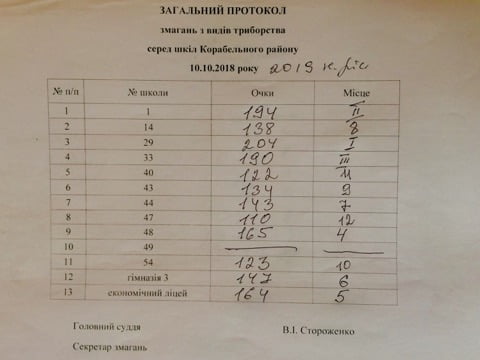 ЗАГАЛЬНИЙ ПРОТОКОЛ
змагань з видів триборства
серед шкіл Корабельного району
10.10.2018 року 2019 н.рік
№ п/п № школи Очки Місце
1 1 194 II
2 14 138 8
3 29 204 I
4 33 190 III
5 40 122 11
6 43 134 9
7 44 143 7
8 47 110 12
9 48 165 4
10 49
11 54 123 10
12 гімназія 3 147 6
13 економічний ліцей 164 5
Головний суддя В.І. Стороженко
Секретар змагань